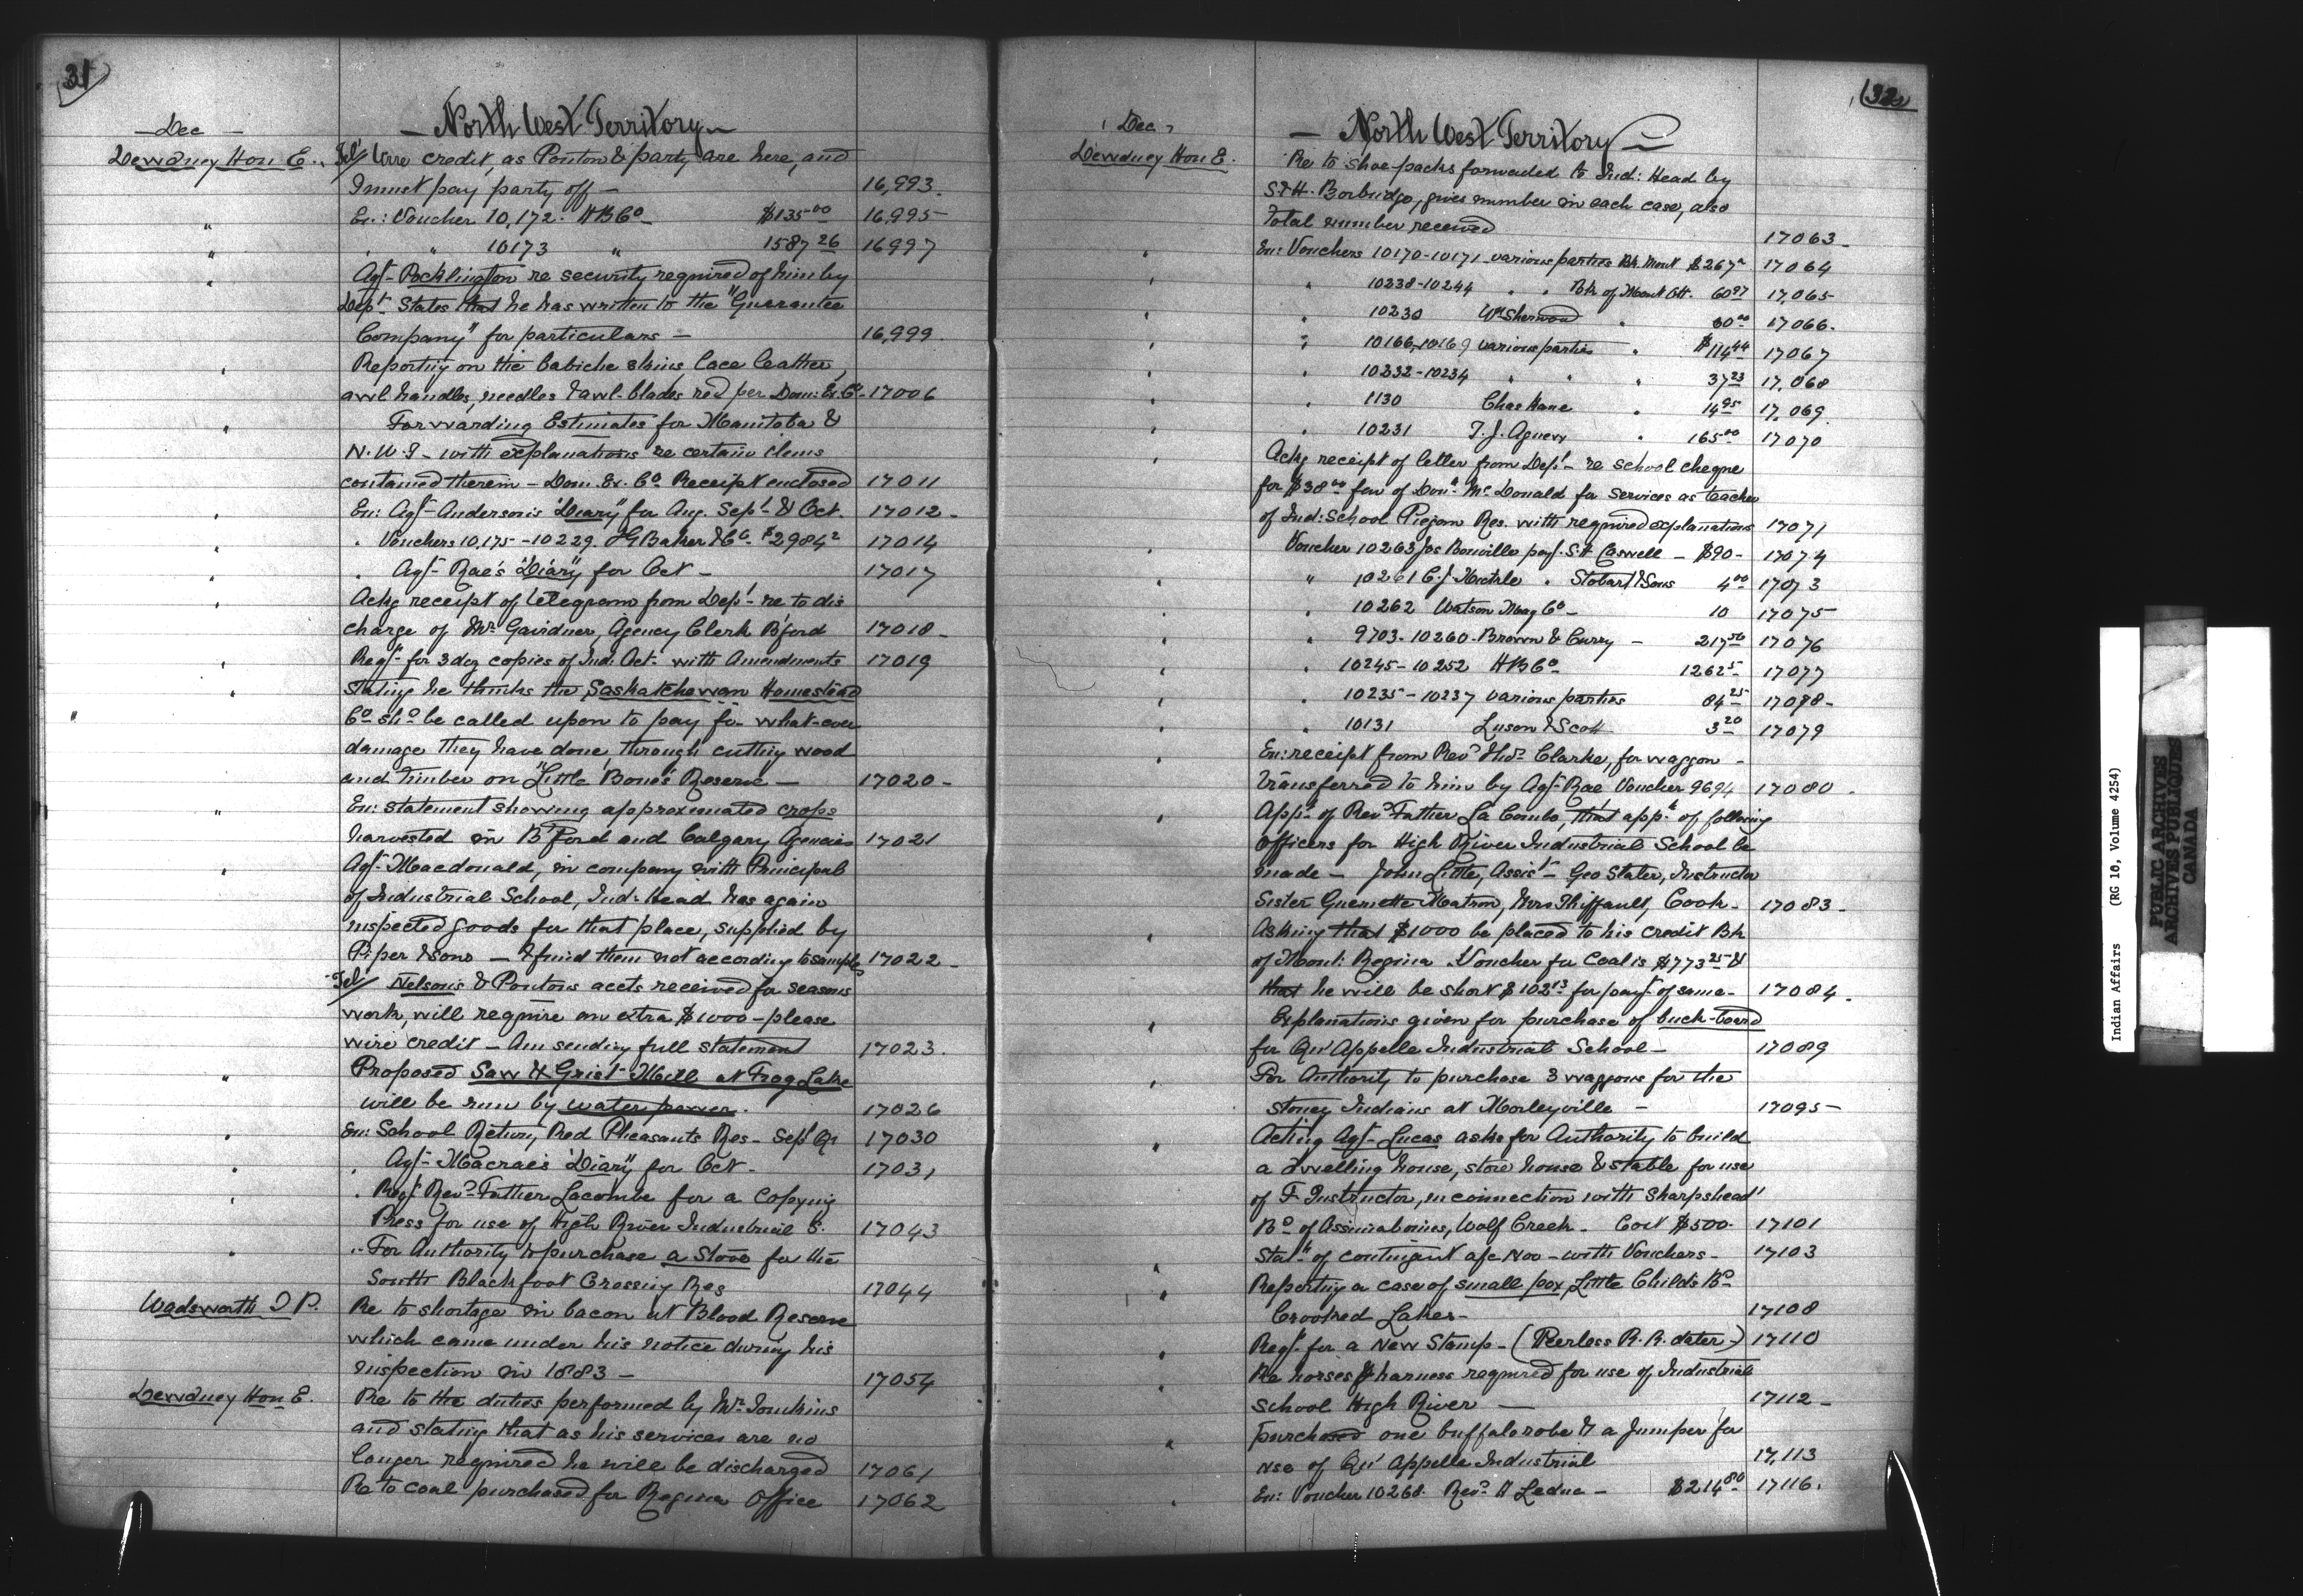 31
Dec
North West Territory
Dewdney Hon E.
Tel/ Wire credit, as Ponton & party are here, and
I must pay party off — 16,993.
" En: Voucher 10,172. H B Co $135.00 16,995
" " 10173 " 1587 26 16997
" Agt Pocklington re security required of him by
Dept States that he has written to the "Guarantee
Company" for particulars — 16,999.
" Reporting on the babiche skins, lace leather,
awl handles, needles & awl-blades recd per Dom: Ex. Co 17006
" Forwarding Estimates for Manitoba &
N.W.T. with explanations re certain items
contained therein — Dom. Ex. Co Receipt enclosed 17011
" En: Agt Anderson's "Diary" for Aug. Sept & Oct. 17012
" " Vouchers 10,175 - 10229. I G Baker & Co $2984 2 17014
" " Agt Rae's "Diary" for Oct — 17017
" Ackg receipt of telegram from Dept re to dis
charge of Mr Gairdner, Agency Clerk B'ford 17018
" Reqt for 3 doz copies of Ind: Act. with Amendments 17019
" Stating he thinks the Saskatchewan Homestead
Co shd be called upon to pay for what-ever
damage they have done, through cutting wood
and timber on "Little Bone's" Reserve — 17020
" En: statement showing approximated crops
harvested in B'ford and Calgary Agencies 17021
" Agt Macdonald, in company with Principal
of Industrial School, Ind: Head has again
inspected goods for that place, supplied by
Piper & Sons — & find them not according to sample 17022
Tel/ Nelson's & Ponton's accts received for seasons
work, will require an extra $1000 — please
wire credit — Am sending full statement 17023.
" Proposed Saw & Grist Mill at Frog Lake
will be run by water power. 17026
" En: School Return, Red Pheasants Res — Sept Qr 17030
" " Agt Macrae's "Diary" for Oct. 17031
" " Reqt Revd Father Lacombe for a Copying
Press for use of High River Industrial S. 17043
" " For Authority to purchase a Stove for the
South Blackfoot Crossing Res 17044
Wadsworth T P.
Re to shortage in bacon at Blood Reserve
which came under his notice during his
inspection in 1883 — 17054
Dewdney Hon E.
Re to the duties performed by Mr Tomkins
and stating that as his services are no
longer required he will be discharged 17061
Re to coal purchased for Regina Office 17062
32
Dec
North West Territory
Dewdney Hon E.
Re to shoe-packs forwarded to Ind: Head by
S. & H. Borbridge, gives number in each case, also
total number received 17063
" En: Vouchers 10170-10171 various parties Bk. Mont $267 17064
" " 10238-10244 " " Bk of Mont Ott. 60 97 17,065
" " 10230 Wm Sherwood " 30 00 17066.
" " 10166-10169 various parties " $114 44 17067
" " 10232-10234 " " " 37 23 17,068
" " 1130 Chas Kane " 14 95 17,069.
" " 10231 T. J. Agnew " 165 00 17070
" Ackg receipt of letter from Dept re school cheque
for $38 00 favr of Dond McDonald for services as teacher
of Ind: School Piegan Res. with required explanations 17071
" Voucher 10263 Jos Bonville payt S. H Caswell — $90 — 17074
" " 10261 C. J. " Stobart & Sons 4 00 17073
" " 10262 Watson Mag Co — 10 17075
" " 9703-10260 Brown & Curry — 217 56 17076
" " 10245-10252 H B Co 1262 5 17077
" " 10235-10237 various parties 84 25 17078
" " 10131 Luson & Scott 3 20 17079
" En: receipt from Revd Thos Clarke, for waggon
transferred to him by Agt Rae Voucher 9694 17080.
" Appn of Revd Father La Combe, that appt of following
officers for High River Industrial School be
made — John Little, Assist — Geo Slater, Instructor
Sister Guenette Matron, Mrs Thiffault, Cook. 17083
" Asking that $1000 be placed to his credit Bk
of Mont: Regina. Voucher for Coal is $773 25 &
that he will be short $102 13 for payt of same 17084.
" Explanations given for purchase of buck-board
for Qu'Appelle Industrial School — 17089
" For Authority to purchase 3 waggons for the
Stoney Indians at Morleyville — 17095
" Acting Agt Lucas asks for Authority to build
a dwelling house, store house & stable for use
of F. Instructor, in connection with Sharpshead'
Bd of Assiniboines, Wolf Creek. Cost $500. 17101
" Statt of contingent a/c Nov — with Vouchers — 17103
" Reporting a case of small pox, Little Childs Bd
Crooked Lakes — 17108
" Reqt for a New Stamp — (Peerless R. R. dater) 17110
" Re horses & harness required for use of Industrial
School High River — 17112
" Purchased one buffalo robe & a Jumper for
use of Qu'Appelle Industrial 17,113
" En: Voucher 10268. Revd H Leduc — $214 80 17116.
Indian Affairs (RG 10, Volume 4254)
PUBLIC ARCHIVES
ARCHIVES PUBLIQUES
CANADA